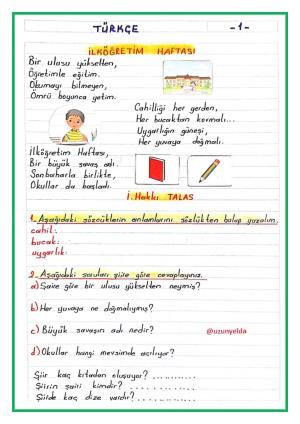 TÜRKÇE
-1-
İLKÖĞRETİM HAFTASI
Bir ulusu yükselten,
Öğretimle eğitim.
Okumayı bilmeyen,
Ömrü boyunca yetim.
Cahilliği her yerden,
Her bucaktan kovmalı...
Uygarlığın güneşi,
Her yuvaya doğmalı.
İlköğretim Haftası,
Bir büyük savaş adı.
Sonbaharla birlikte,
Okullar da başladı.
İ. Hakkı TALAS
1. Aşağıdaki sözcüklerin anlamlarını sözlükten bulup yazalım.
cahil:
bucak:
uygarlık:
2. Aşağıdaki soruları şiire göre cevaplayınız.
a) Şaire göre bir ulusu yükselten neymiş?
b) Her yuvaya ne doğmalıymış?
c) Büyük savaşın adı nedir?
@uzunyelda
d) Okullar hangi mevsimde açılıyor?
Şiir kaç kıtadan oluşuyor? ............
Şiirin şairi kimdir? ............
Şiirde kaç dize vardır? ............